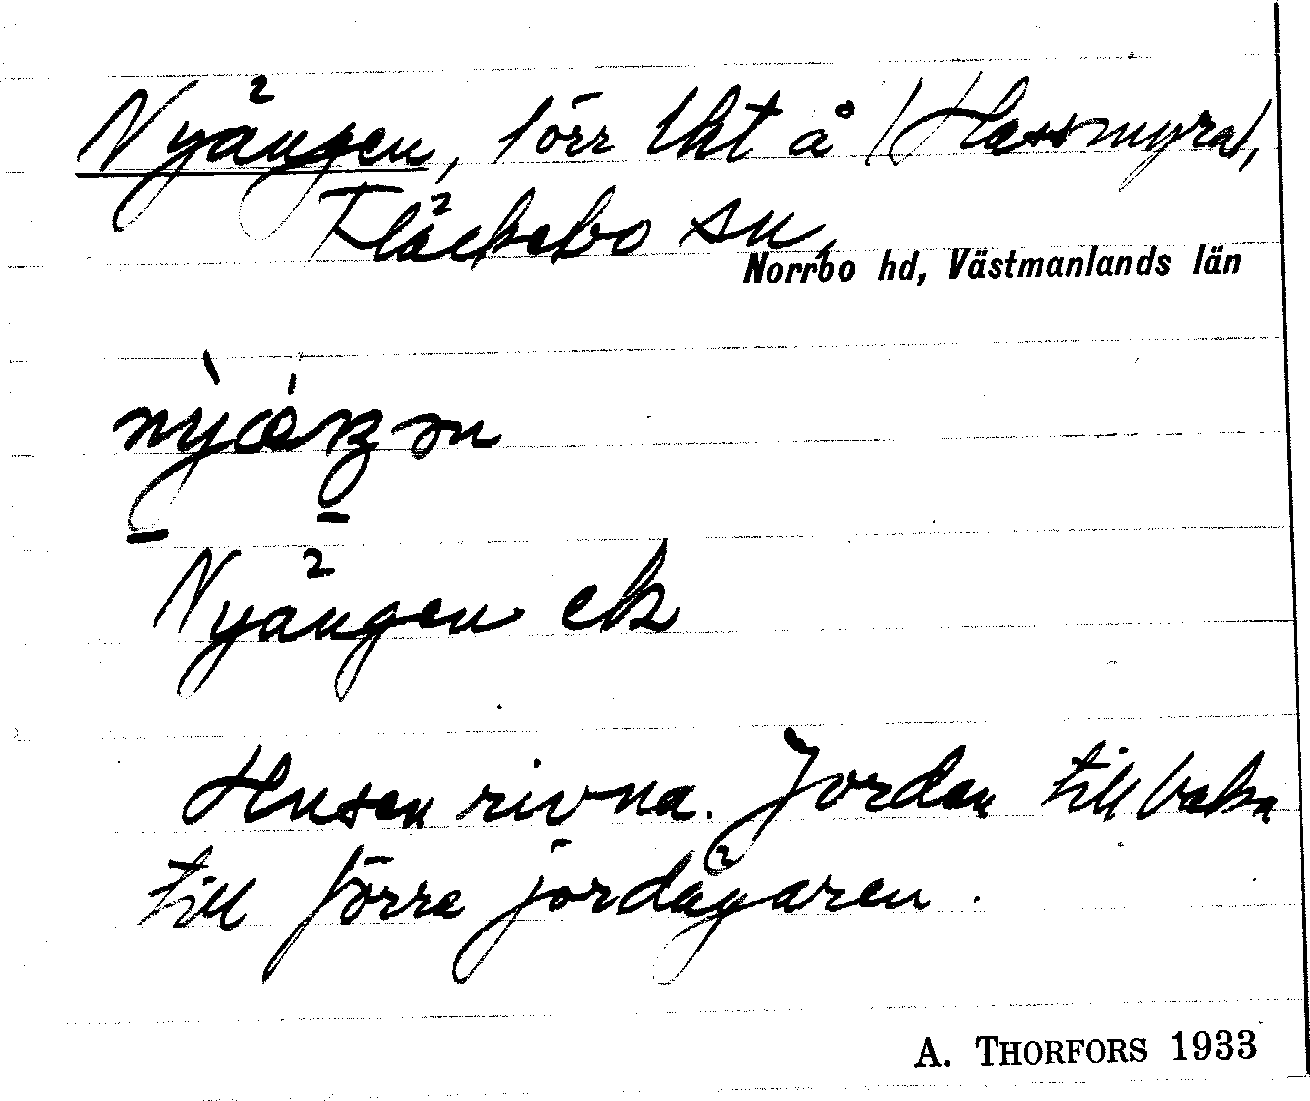 Nyängen, förr lht å (Hassmyra),
Fläckebo sn,
Norrbo hd, Västmanlands län
Nyängen ek
Husen rivna. Jorden tillbaka
till förre jordägaren.
A. THORFORS 1933